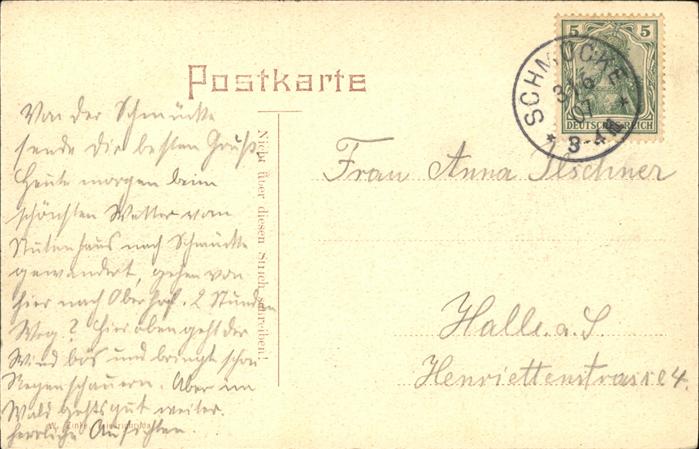 Postkarte
5 5
DEUTSCHES REICH
SCHMÜCKE
07
3-4N
Nicht über diesen Strich schreiben!
Von der Schmücke
sende Dir besten Gruß.
Heute morgen beim
schönsten Wetter vom
Stutenhaus nach Schmücke
gewandert, gehen von
hier nach Oberhof. 2 Stunden
Weg? Hier oben geht der
Wind bös und bringt schon
Regenschauern. Aber im
Wald gehts gut weiter.
herrliche Aussichten.
Frau Anna Ilschner
Halle a. S.
Henriettenstrasse 4.